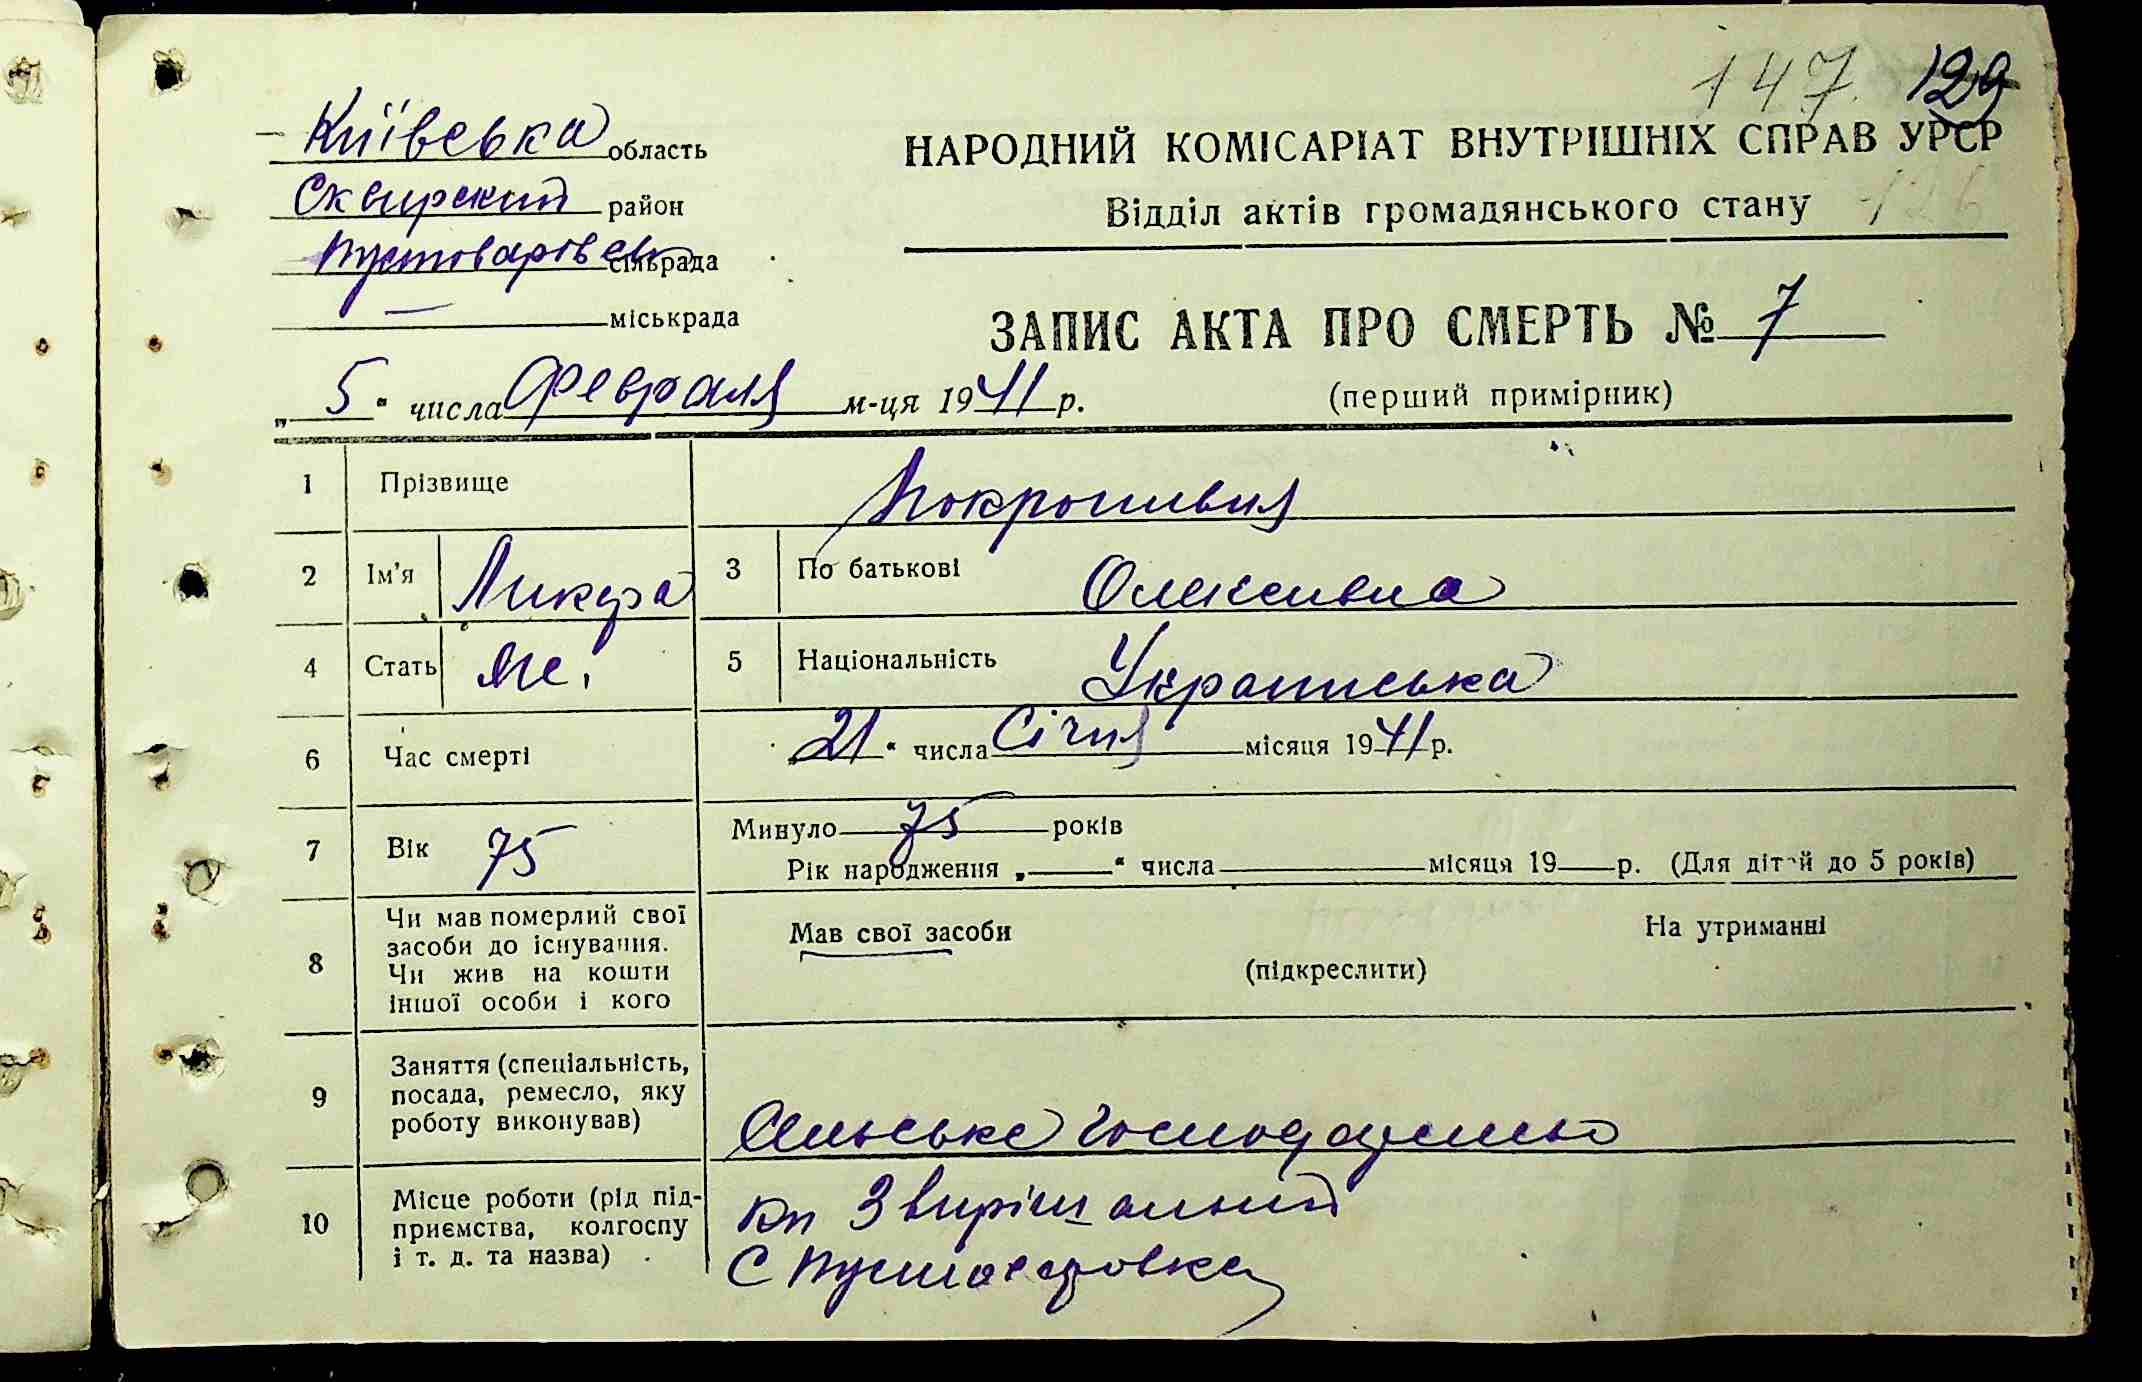 147 129
Київська область
НАРОДНИЙ КОМІСАРІАТ ВНУТРІШНІХ СПРАВ УРСР
Сквирский район
Відділ актів громадянського стану 126
Пустоварівск сільрада
— міськрада
ЗАПИС АКТА ПРО СМЕРТЬ № 7
„ 5 “ числа Февраля м-ця 1941 р.
(перший примірник)
1 Прізвище Покропивня
2 Ім'я Ликера 3 По батькові Олексивна
4 Стать Же. 5 Національність Украинська
6 Час смерті „21“ числа Січня місяця 1941 р.
7 Вік 75 Минуло 75 років
Рік народження „ “ числа місяця 19 р. (Для дітей до 5 років)
8 Чи мав померлий свої засоби до існування. Чи жив на кошти іншої особи і кого
Мав свої засоби На утриманні
(підкреслити)
9 Заняття (спеціальність, посада, ремесло, яку роботу виконував)
Сильське господарсьво
10 Місце роботи (рід підприємства, колгоспу і т. д. та назва)
кп Звирішальний
С Пустоваровка